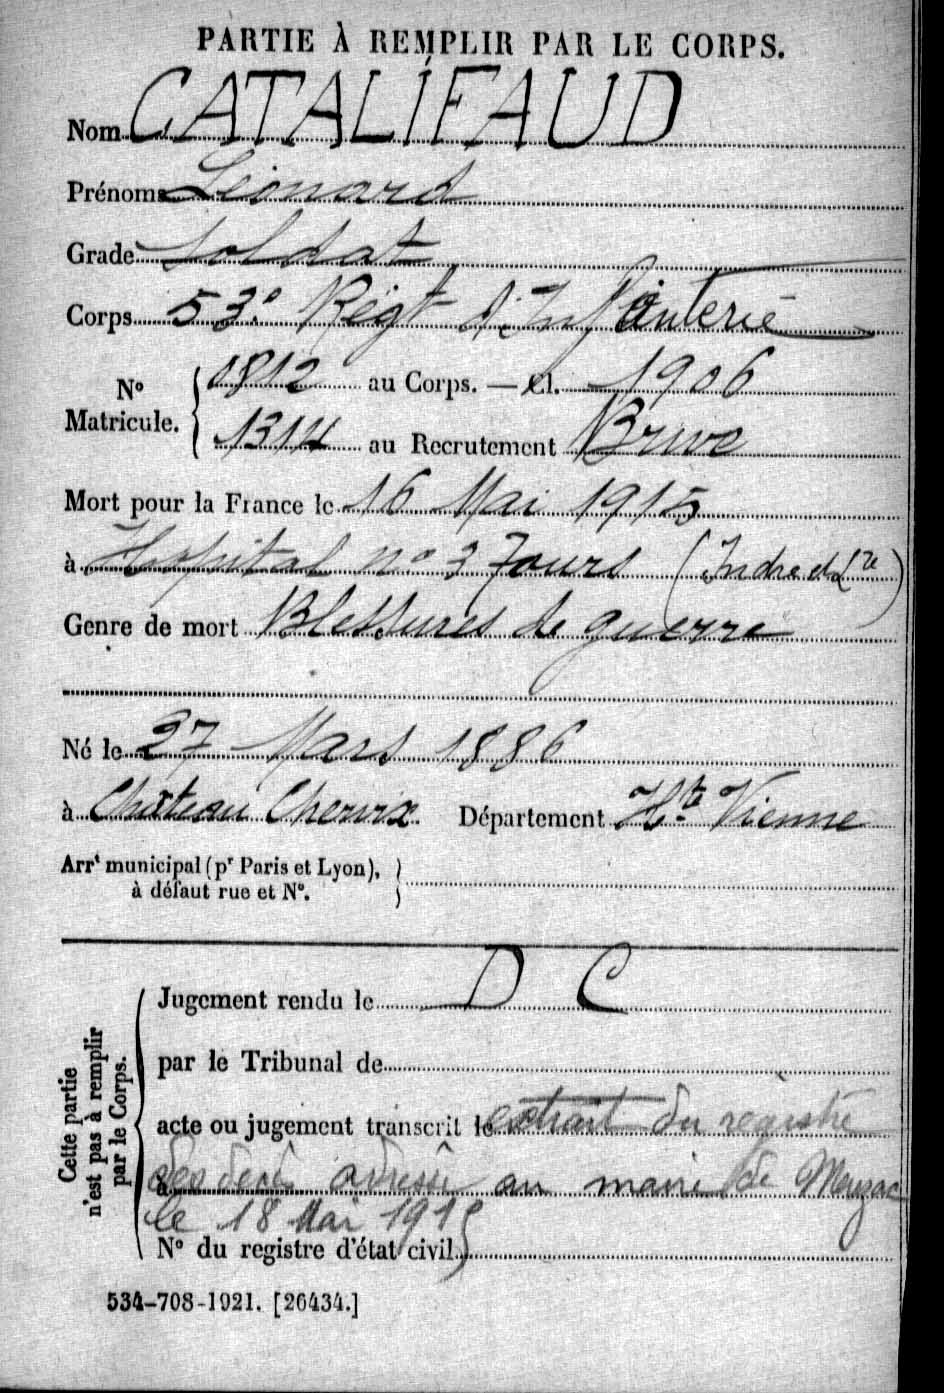 PARTIE À REMPLIR PAR LE CORPS.
Nom CATALIFAUD
Prénoms Léonard
Grade Soldat
Corps 53e Régt d'Infanterie
No Matricule. { 0812 au Corps. — Cl. 1906
1314 au Recrutement Brive
Mort pour la France le 16 Mai 1915
à Hopital no 3 Tours (Indre et Lre)
Genre de mort Blessures de guerre
Né le 27 Mars 1886
à Château Chervix Département Hte Vienne
Arrt municipal (pr Paris et Lyon),
à défaut rue et No.
Cette partie
n'est pas à remplir
par le Corps.
Jugement rendu le D C
par le Tribunal de
acte ou jugement transcrit le extrait du registre
à des décès adressé au maire de Meuzac
le 18 Mai 1915
No du registre d'état civil
534-708-1921. [26434.]